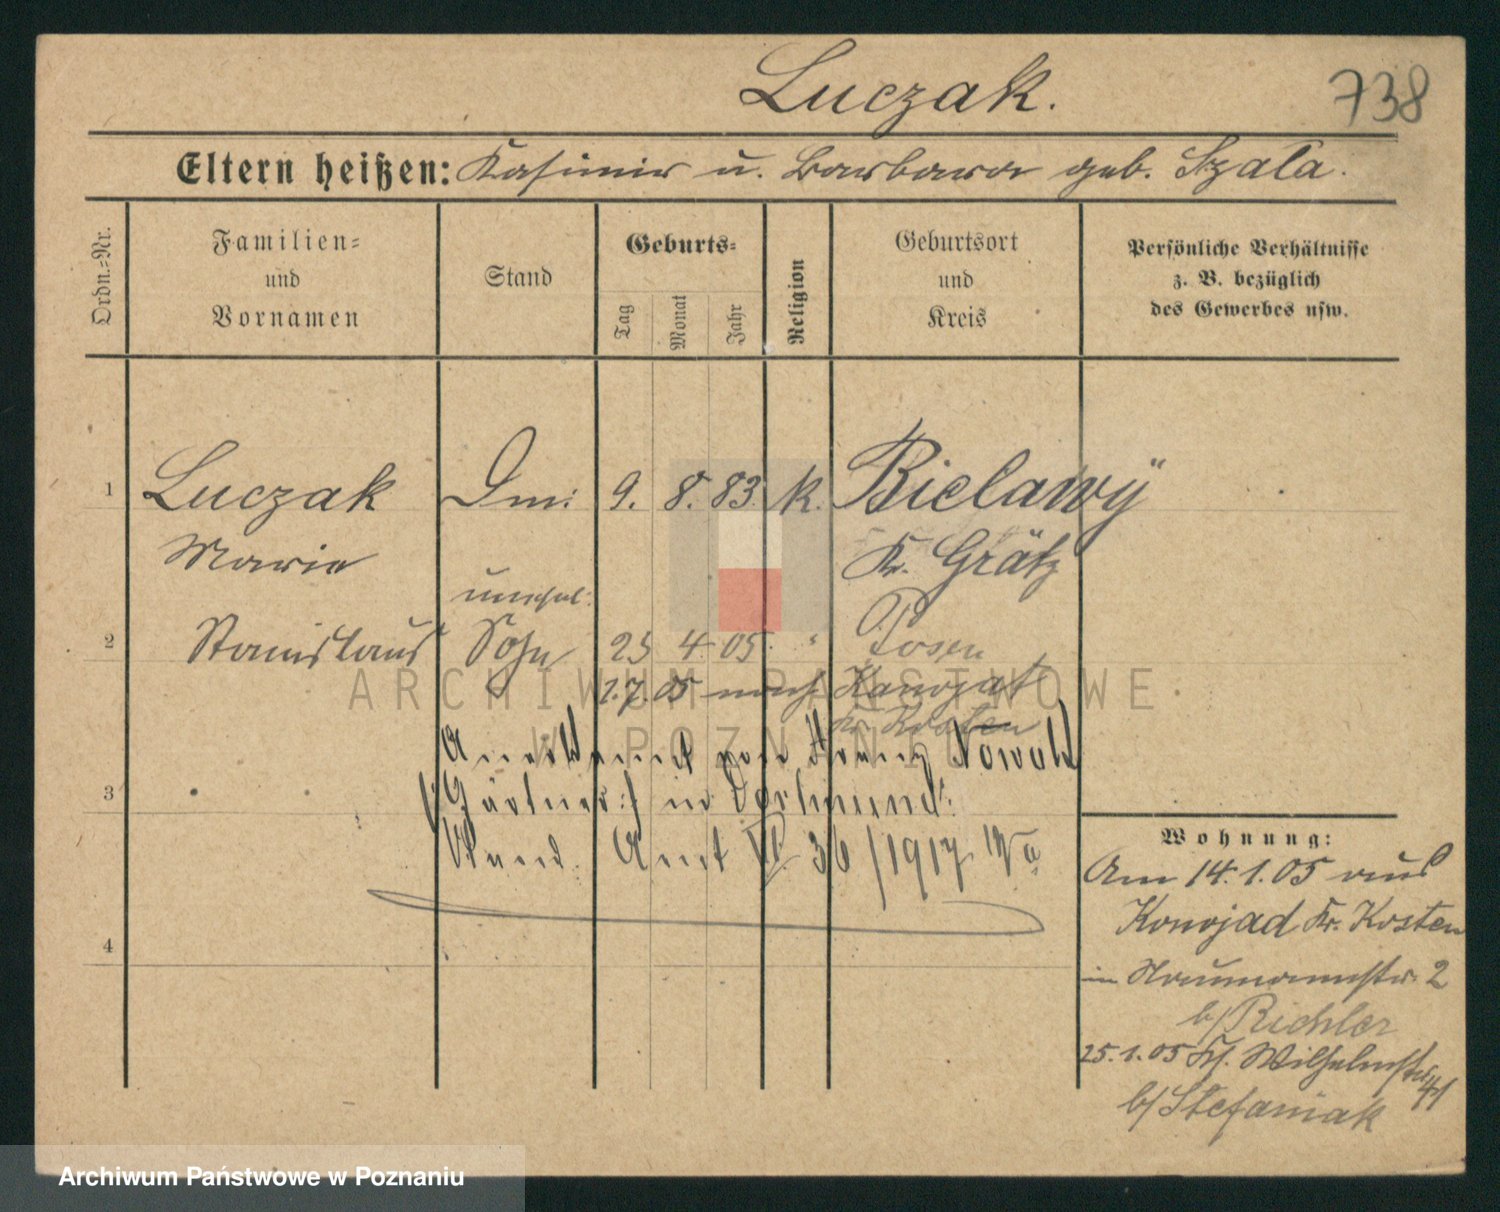 Luczak.
738
Eltern heißen: Kasimir u. Barbara geb. Szala.
Ordn.-Nr.
Familien-
und
Vornamen
Stand
Geburts-
Tag
Monat
Jahr
Religion
Geburtsort
und
Kreis
Persönliche Verhältnisse
z. B. bezüglich
des Gewerbes usw.
1 Luczak 9. 8. 83 k. Bielawÿ
Marie Kr. Grätz
unehel.
2 Stanislaus Sohn 25 4 05 " Posen
1.7.05 nach Konojat
Kr. Kosten
Anerkannt von Franz Nowak
3 Gärtner in Dortmund.
Stand. Amt VI 36/1917
4
Wohnung:
Am 14.1.05 aus
Konojad Kr. Kosten
in Naumannstr. 2
b/ Richler
25.1.05 Wilhelmstr. 41
b/ Stefaniak
ARCHIWUM PAŃSTWOWE
W POZNANIU
Archiwum Państwowe w Poznaniu